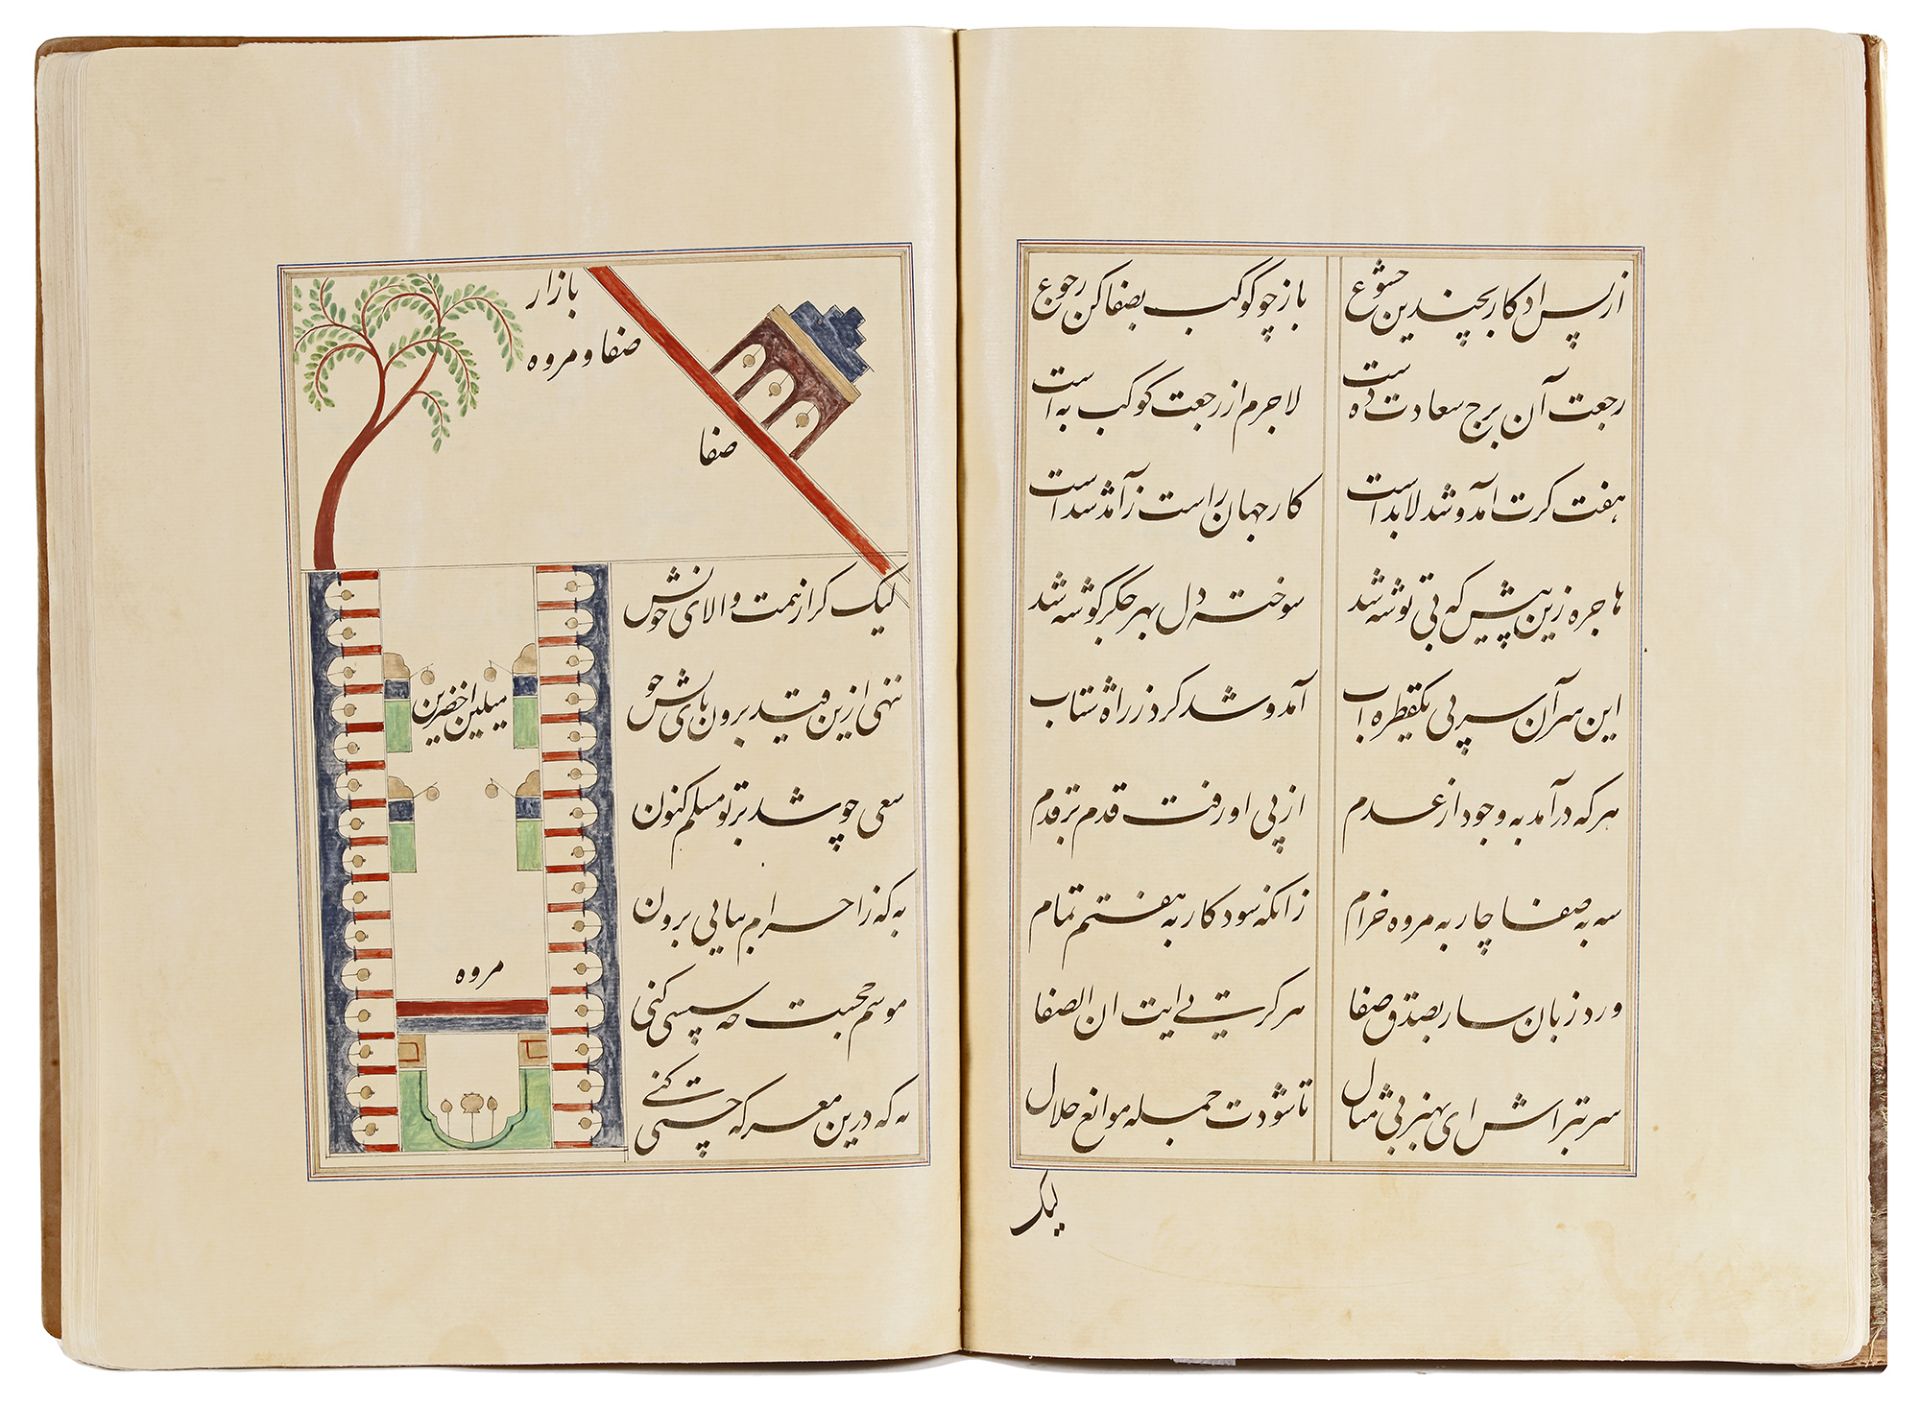 از پس ادکار بچندین خشوع
باز چو کوکب بصفا کن رجوع
رجعت آن برج سعادت ده است
لاجرم از رجعت کوکب به است
هفت کرت آمد و شد لابد است
کار جهان راست ز آمد شد است
هاجره زین پیش که بی توشه شد
سوخته دل بهر جگر گوشه شد
این سر آن سر پی یکقطره اب
آمد و شد کرد ز راه شتاب
هر که در آمد به وجود از عدم
از پی او رفت قدم تر قدم
سه به صفا چار به مروه خرام
زانکه شود کار به هفتم تمام
ورد زبان ساز بصدق و صفا
هر کرتی ایت ان الصفا
سر بتراش ای بهنر بی مثال
تا شودت جمله موانع حلال
لیک
بازار
صفا و مروه
صفا
لیک کر از نهمت والای خویش
نهی ازین قید برون پای خویش
سعی چو شد بر تو مسلم کنون
به که ز احرام بیایی برون
موسم حجست چه سستی کنی
به که درین معرکه چستی کنی
میلین اخضرین
مروه